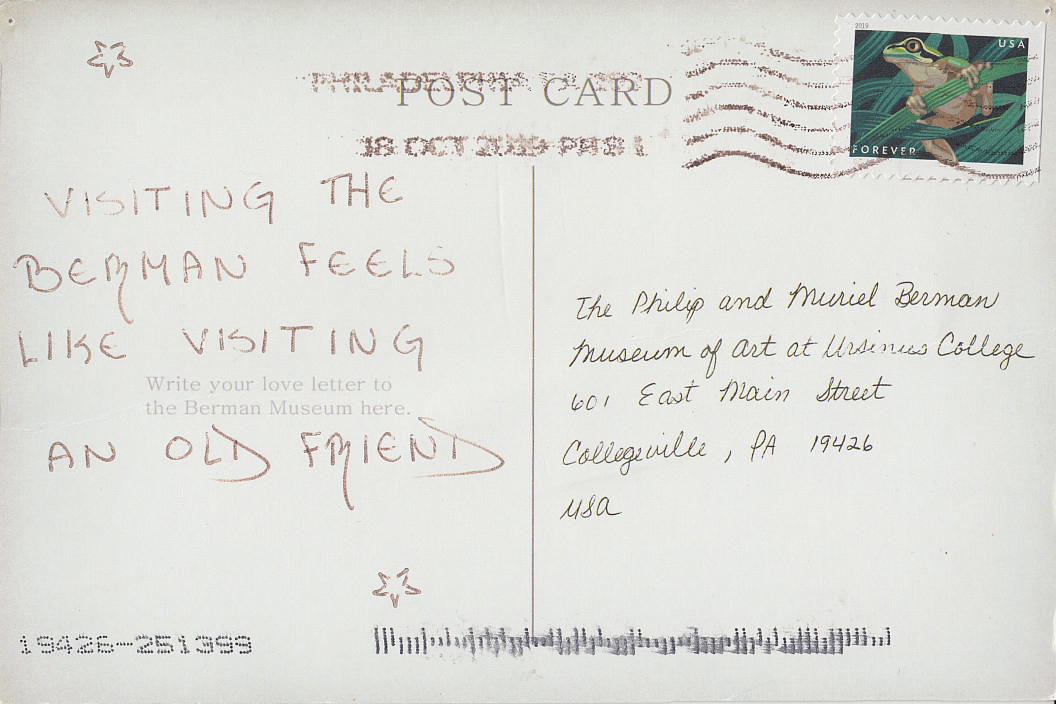 2019
USA
FOREVER
PHILADELPHIA
POST CARD
18 OCT 2019 PM 3 L
VISITING THE
BERMAN FEELS
LIKE VISITING
Write your love letter to
the Berman Museum here.
AN OLD FRIEND
The Philip and Muriel Berman
Museum of Art at Ursinus College
601 East Main Street
Collegeville, PA 19426
USA
19426-251399